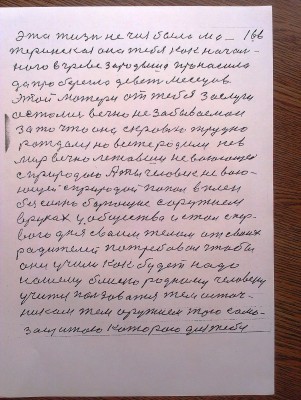 Эта жизнь не чия была ма- 166
теринская она тебя как начал-
ного в чреве зародвиша принасила
да проберегла девет месецов
Этой матери от тебя заслуга
остоится вечно не забываемая
за то что она с кровью трудно
рождала но ветеродили не в
мир вечно летавший не воюющей
с природаю А ты человек не вою-
ющей с природой попал в плен
бессонно борющие с оружием
в руках у общества и стал с пер-
вого дня своим телом от своих
родителей потребовал чтобы
они учили как будет надо
нашему близко родному человеку
учится ползоватся тем источ-
никам тем оружием тою само-
защитою которою для тебя